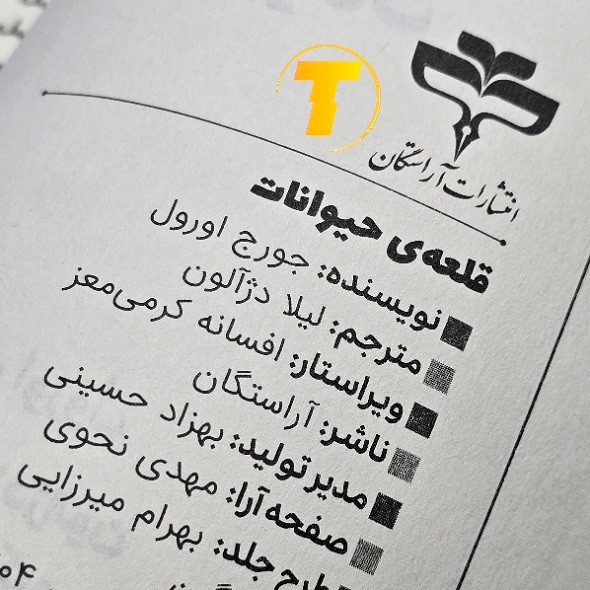 T
انتشارات آراستگان
قلعه‌ی حیوانات
نویسنده: جورج اورول
مترجم: لیلا دژآلون
ویراستار: افسانه کرمی‌معز
ناشر: آراستگان
مدیر تولید: بهزاد حسینی
صفحه‌آرا: مهدی نحوی
طرح جلد: بهرام میرزایی